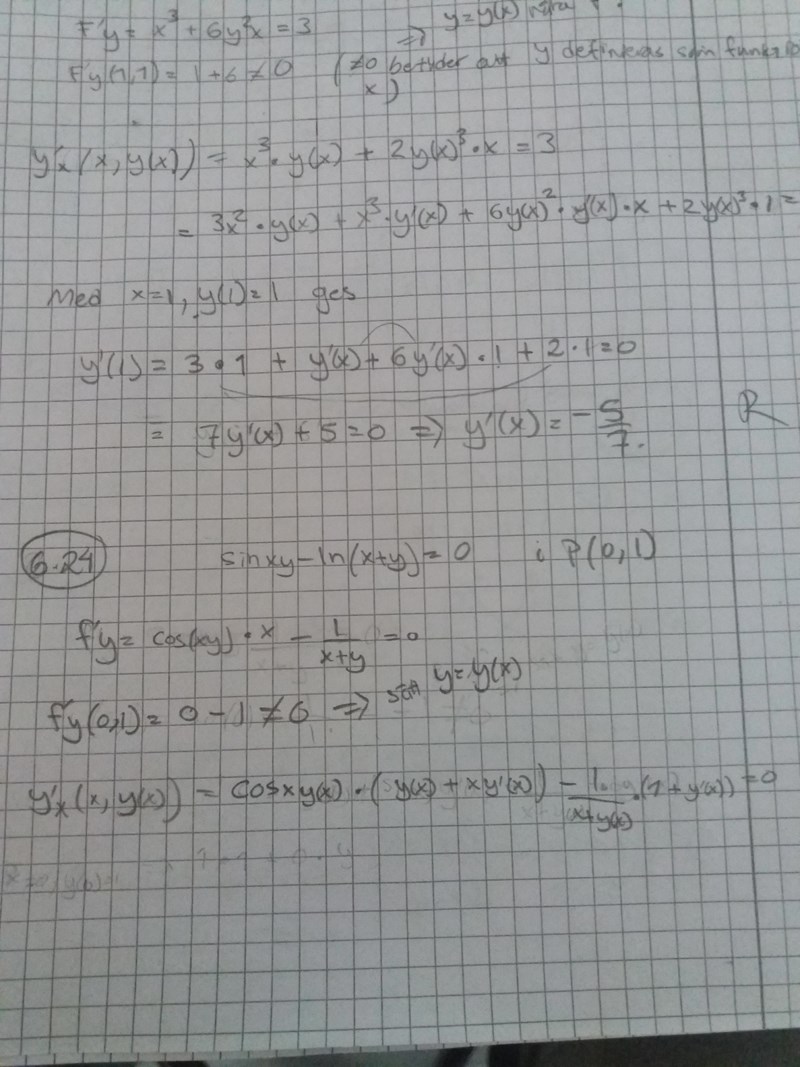 f'y = x³ + 6y²x = 3
⇒ y=y(x) nära
f'y(1,1) = 1+6 ≠ 0 (≠0 betyder att y definieras som funktion
x)
y'x(x, y(x)) = x³·y(x) + 2y(x)³·x = 3
= 3x²·y(x) + x³·y'(x) + 6y(x)²·y'(x)·x + 2y(x)³·1 =
Med x=1, y(1)=1 ges
y'(1) = 3·1 + y'(x) + 6y'(x)·1 + 2·1=0
= 7y'(x) + 5 = 0 ⇒ y'(x) = -5/7. R
6.24 sinxy-ln(x+y)=0 i P(0,1)
f'y = cos(xy)·x - 1/(x+y) = 0
f'y(0,1) = 0 - 1 ≠ 0 ⇒ sätt y=y(x)
y'x(x, y(x)) = cosxy(x)·(y(x) + xy'(x)) - 1/(x+y(x))·(1+y'(x)) = 0